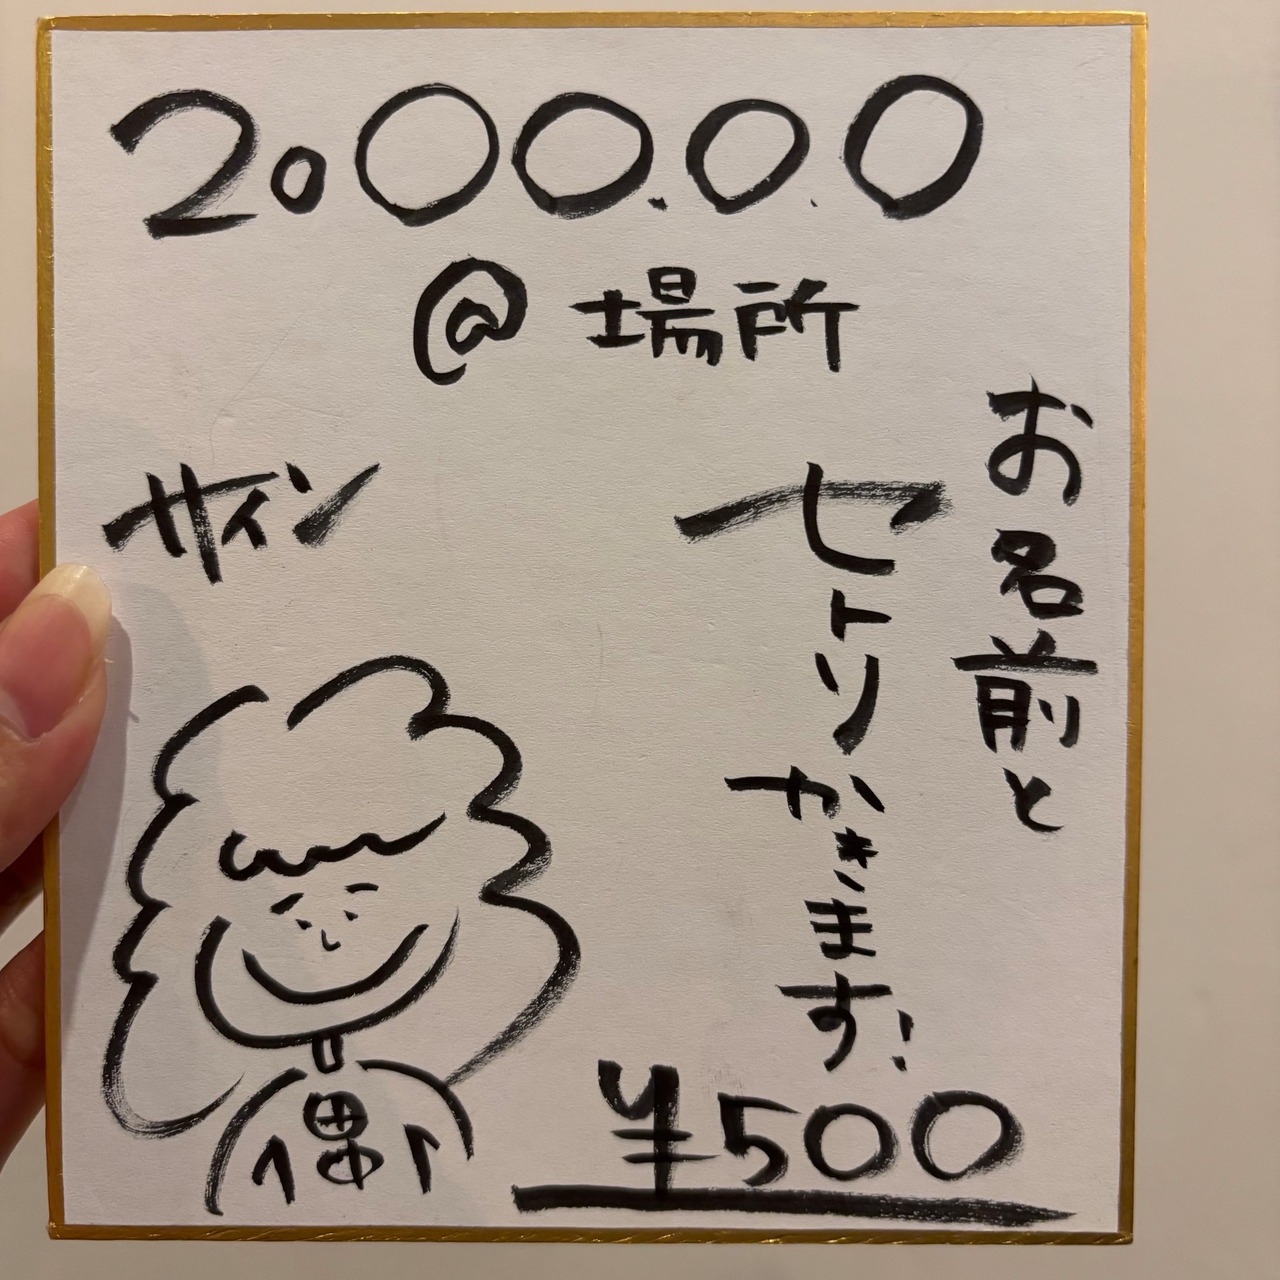 2000.0.0
@場所
お名前と
セトリかきます!
サイン
¥500